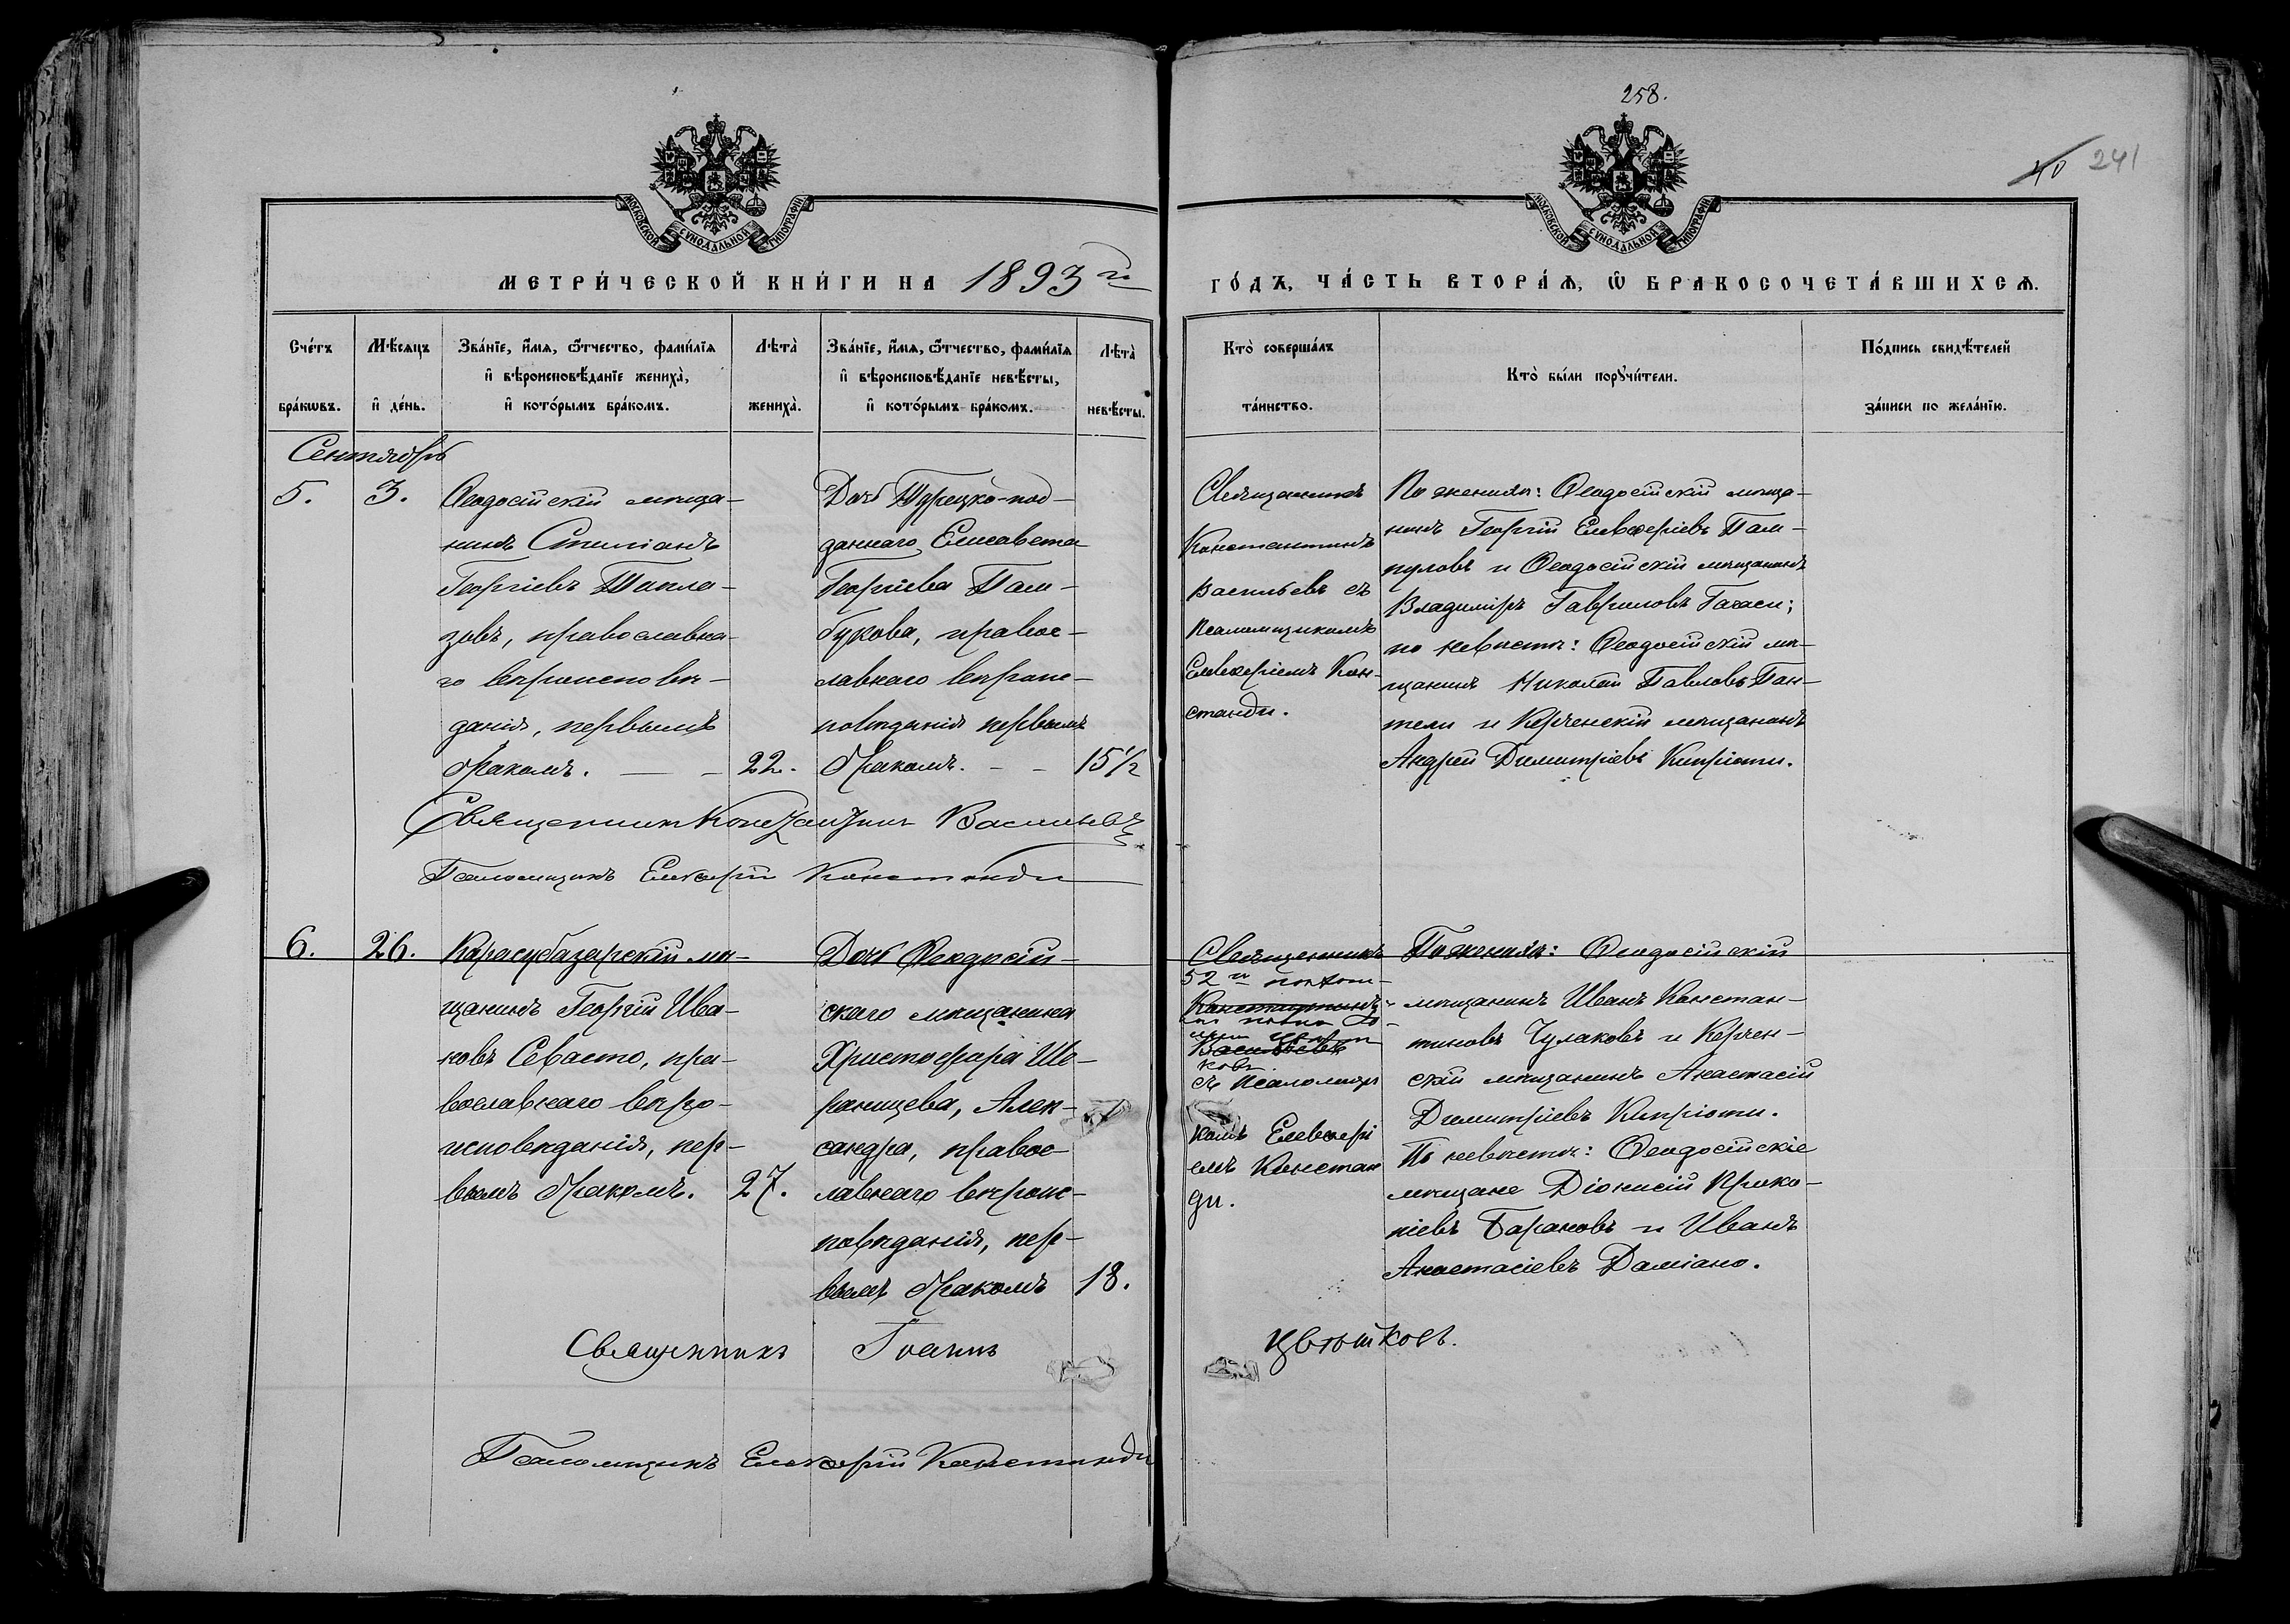 258.
40 241
МОСКОВСКОЙ СУНОДАЛЬНОЙ ТИПОГРАФІИ
МОСКОВСКОЙ СУНОДАЛЬНОЙ ТИПОГРАФІИ
МЕТРИ́ЧЕСКОЙ КНИ́ГИ НА 1893 го
ГО́ДЪ, ЧА́СТЬ ВТОРА́Ѧ, Ѡ҆ БРАКОСОЧЕТА́ВШИХСѦ.
Сче́тъ бра́кѡвъ.
Мѣ́сѧцъ и҆ де́нь.
Зва́нїе, и҆́мѧ, ѻ҆́тчество, фами́лїѧ
и҆ вѣроисповѣ́данїе жениха̀,
и҆ кото́рымъ бра́комъ.
Лѣта̀ жениха̀.
Зва́нїе, и҆́мѧ, ѻ҆́тчество, фами́лїѧ
и҆ вѣроисповѣ́данїе невѣ́сты,
и҆ кото́рымъ бра́комъ.
Лѣта̀ невѣ́сты.
Кто̀ соверша́лъ
та́инство.
Кто̀ бы́ли порꙋчи́тели.
По́дпись свидѣ́телей
за́писи по жела́нїю.
Сентябрь
5.
3.
Ѳеодосійскій мѣща-
нинъ Стиліанъ
Георгіевъ Шапла-
зовъ, православна-
го вѣроисповѣ-
данія, первымъ
бракомъ. — —
22.
Дочь Турецко-под-
даннаго, Елисавета
Георгіева Пам-
букова, правос-
лавнаго вѣроис-
повѣданія первымъ
бракомъ. — —
15 1/2
Священникъ
Константинъ
Васильевъ съ
псаломщикомъ
Елевѳеріемъ Кон-
станди.
По женихѣ: Ѳеодосійскій мѣща-
нинъ Георгій Елевѳеріевъ Пам-
пуловъ и Ѳеодосійскій мѣщанинъ
Владиміръ Гавриловъ Гагаси;
по невѣстѣ: Ѳеодосійскій мѣ-
щанинъ Николай Павловъ Пан-
тели и Керченскій мѣщанинъ
Андрей Димитріевъ Кипріоти.
Священникъ Константинъ Васильевъ
Псаломщикъ Елевѳерій Констанди
6.
26.
Карасубазарскій мѣ-
щанинъ Георгій Ива-
новъ Севасто, пра-
вославнаго вѣро-
исповѣданія, пер-
вымъ бракомъ.
27.
Дочь Ѳеодосій-
скаго мѣщанина
Христофора Ше-
ранцева, Алек-
сандра, правос-
лавнаго вѣроис-
повѣданія, пер-
вымъ бракомъ
18.
Священникъ
52 го
Константинъ
Васильевъ
ковъ
съ псаломщи
комъ Елевѳері
емъ Констан
ди.
По женихѣ: Ѳеодосійскій
мѣщанинъ Иванъ Констан-
тиновъ Чулаковъ и Керчен-
скій мѣщанинъ Анастасій
Димитріевъ Кипріоти.
По невѣстѣ: Ѳеодосійскіе
мѣщане Діонисій Проко-
піевъ Барановъ и Иванъ
Анастасіевъ Даміано.
Священникъ Іоаннъ Цвѣтковъ.
Псаломщикъ Елевѳерій Констанди